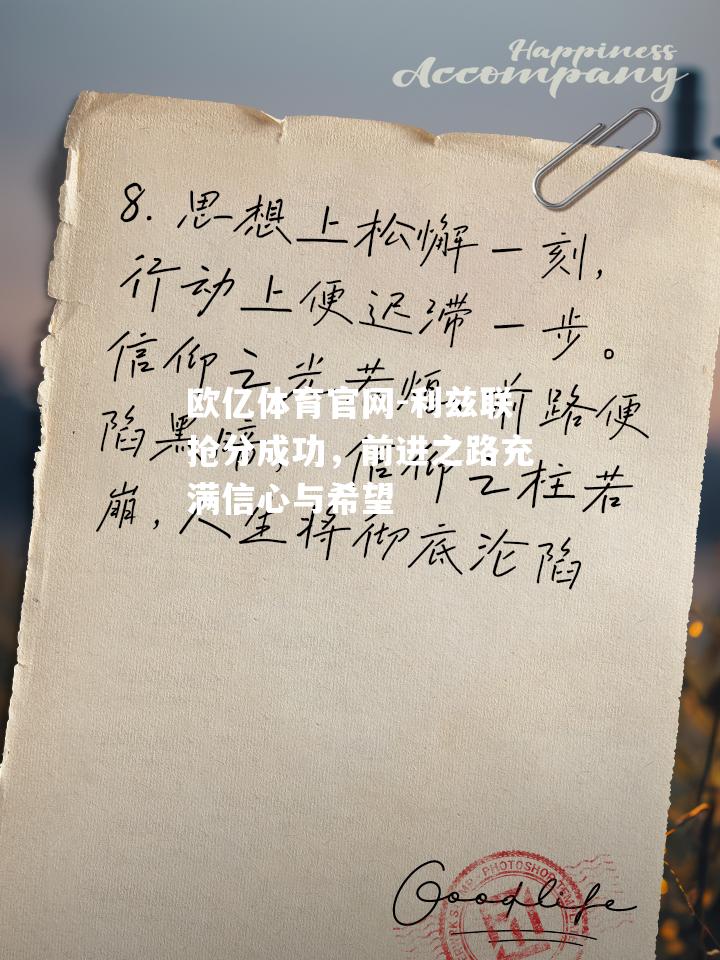 Happiness
Accompany
8. 思想上松懈一刻,
行动上便迟滞一步。
信仰之光若熄,前路便
陷黑暗,信仰之柱若
崩,人生将彻底沦陷
欧亿体育官网-利兹联
抢分成功，前进之路充
满信心与希望
Goodlife
PHOTOSHOP